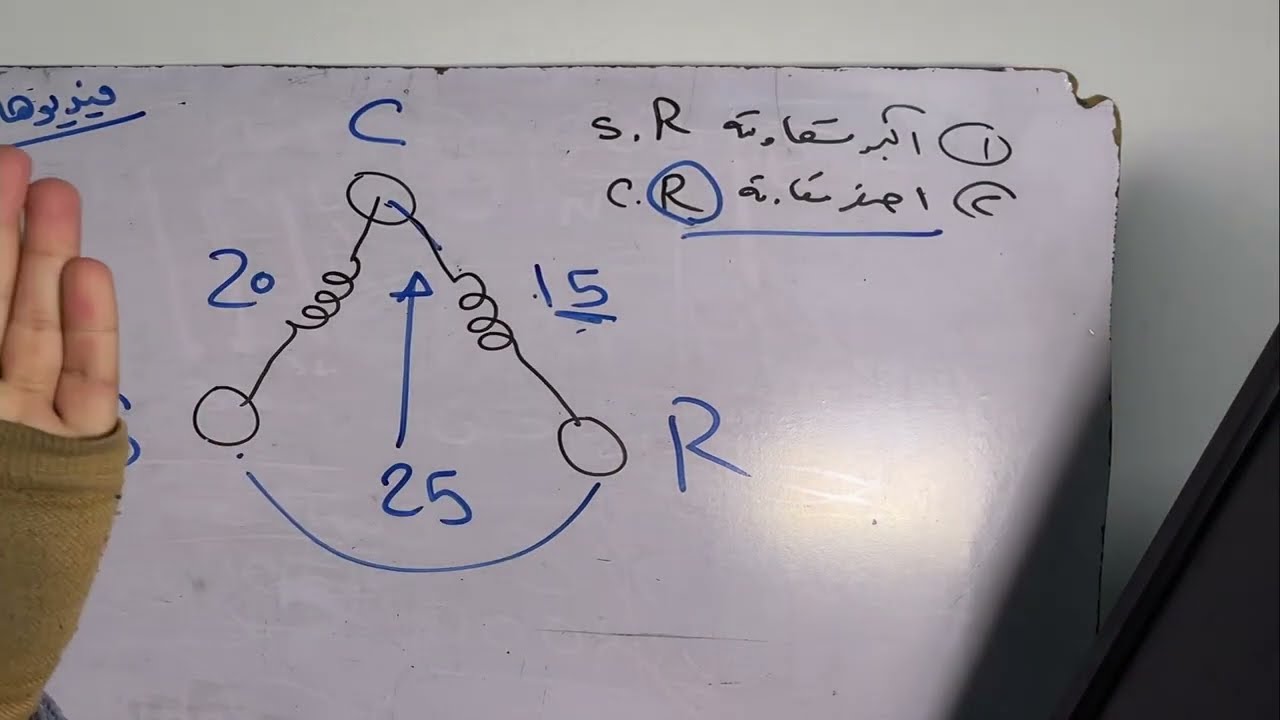 فيديوها
① اكبر مقاومة S.R
② اصغر مقاومة C.R
C
20
15
S
R
25